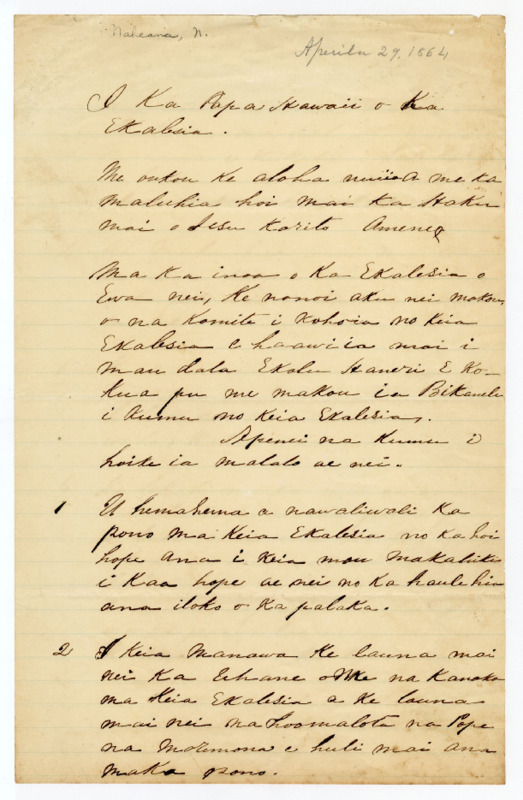 Naheana, N.
Aperila 29. 1864
I Ka Papa Hawaii o Ka
Ekalesia.
Me oukou ke aloha nuiia me ka
maluhia hoi mai ka Haku
mai o Iesu Karito Amene
Ma Ka inoa o Ka Ekalesia o
Ewa nei, Ke nonoi aku nei makou,
o na Komite i Kohoia no Keia
Ekalesia e haawiia mai i
mau dala Ekolu Haneri E Ko-
kua pu me makou ia Bikanele
i Kumu no Keia Ekalesia.
Apenei na Kumu i
hoike ia malalo ae nei.
1 Ua hemahema a nawaliwali Ka
pono ma Keia Ekalesia no ka hoi
hope ana i Keia mau Makahiki
i Kaa hope ae nei no Ka haule hia
ana iloko o Ka palaka.
2 I Keia Manawa Ke launa mai
nei Ka Uhane o ke na Kanaka
ma Keia Ekalesia a Ke launa
mai nei na hoomalote na Pope
na Moremona e huli mai ana
maka pono.